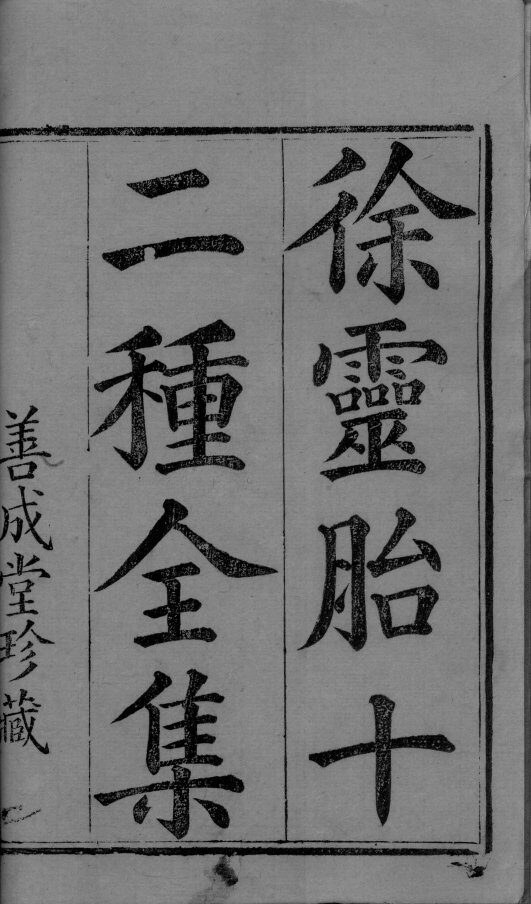 徐靈胎十
二種全集
善成堂珍藏